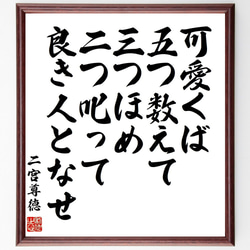 可愛くば
五つ数えて
三つほめ
二つ叱って
良き人となせ
二宮尊徳